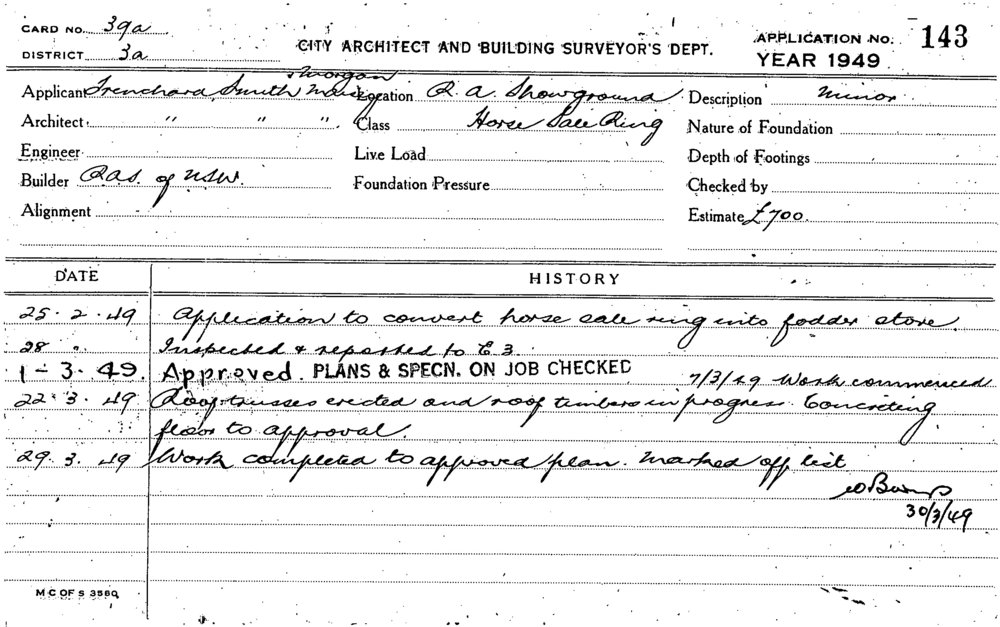 CARD NO. 39a
DISTRICT 3a
CITY ARCHITECT AND BUILDING SURVEYOR'S DEPT.
APPLICATION NO. 143
YEAR 1949
Applicant Trenchard, Smith & Morgan Location R. A. Showground Description Minor
Architect " " " Class Horse Sale Ring Nature of Foundation
Engineer Live Load Depth of Footings
Builder R.A.S. of NSW. Foundation Pressure Checked by
Alignment Estimate £700.
DATE HISTORY
25. 2. 49 Application to convert horse sale ring into fodder store.
28 " Inspected & reported to E 3.
1 - 3. 49. Approved. PLANS & SPECN. ON JOB CHECKED 7/3/49 Work commenced
22. 3. 49 Roof trusses erected and roof timbers in progress. Concreting
floor to approval.
29. 3. 49 Work completed to approved plan. Marked off list
30/3/49
M C OF S 3580